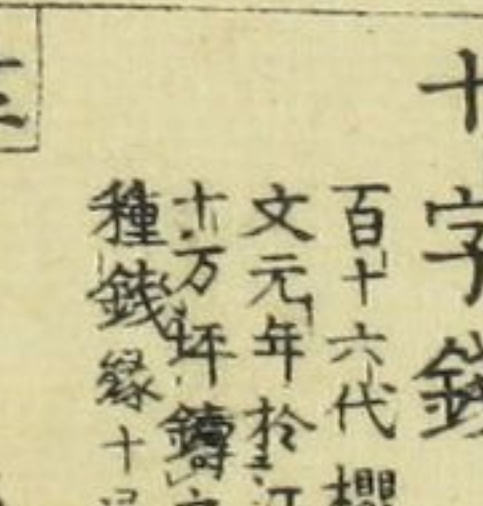 十字錢
百十六代櫻
文元年於江
十万坪鑄之
種錢縁十